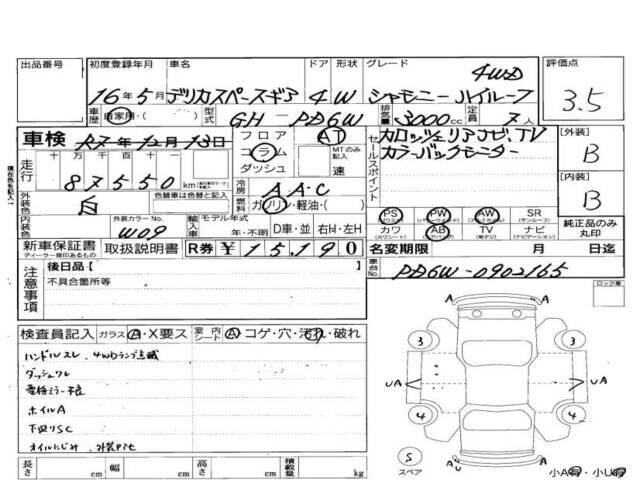 出品番号 初度登録年月 車名 ドア 形状 グレード 評価点
16年5月 デリカスペースギア 4W シャモニーハイルーフ 4WD 3.5
車歴 自家用・( ) 型式 GH-PD6W 排気量 3000cc 定員 7人
車検 R7年12月13日 フロア AT セールスポイント カロッツェリアナビ、TV 【外装】
コラム MTのみ記入 カラーバックモニター B
ダッシュ 速
走行 十 万 千 百 十 87550km 冷房 AAC 【内装】
外装色 白 色替車は色替と記入 燃料 ガソリン・軽油・( ) B
PS PW AW SR
(パワーウィンドウ) (サンルーフ)
内装色 外装カラーNo. W09 輸入車 モデル年式 年・不明 D車・並 右H・左H カワ AB TV ナビ 純正品のみ丸印
(カワシート) (エアバック) (地デジ) (ナビゲーション)
新車保証書 取扱説明書 R券 ¥15,190 名変期限 月 日迄
ディーラー捺印あるもの
注意事項 後日品【 車台No. PD6W-0902165
不具合箇所等 ロック車
検査員記入 ガラス A・X要ス 室内シート A コゲ・穴・汚れ・破れ
ハンドルスレ、4WDランプ点滅
ダッシュワレ
電格ミラー不良
ホイルA
下回りSC
オイルにじみ
長さ cm 幅 cm 高さ cm 積載量 kg
A A
3 3
UA UA
4 4
S
スペア
A A
小A有・小U有